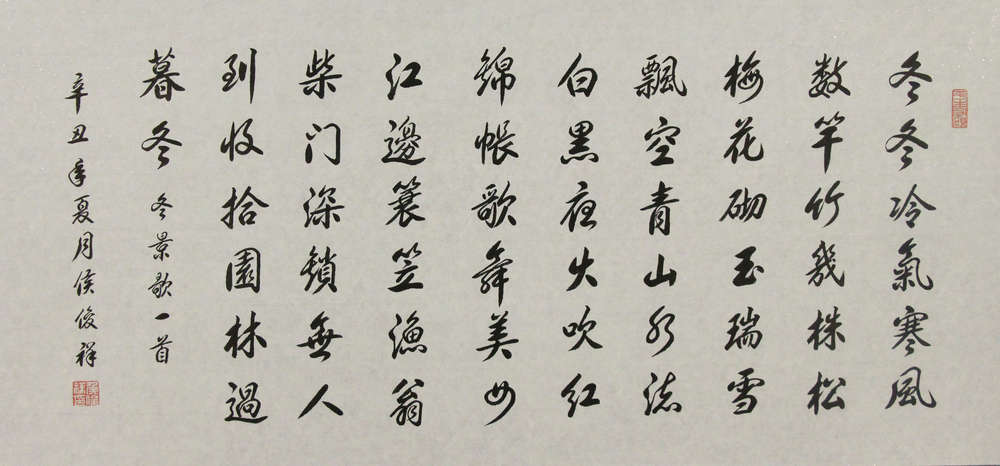 冬冬冷氣寒風
数竿竹幾株松
梅花砌玉瑞雪
飄空青山水流
白黑夜火吹红
錦帳歌舞美女
江邊蓑笠漁翁
柴门深鎖無人
到收拾園林過
暮冬 冬景歌一首
辛丑年夏月侯俊祥